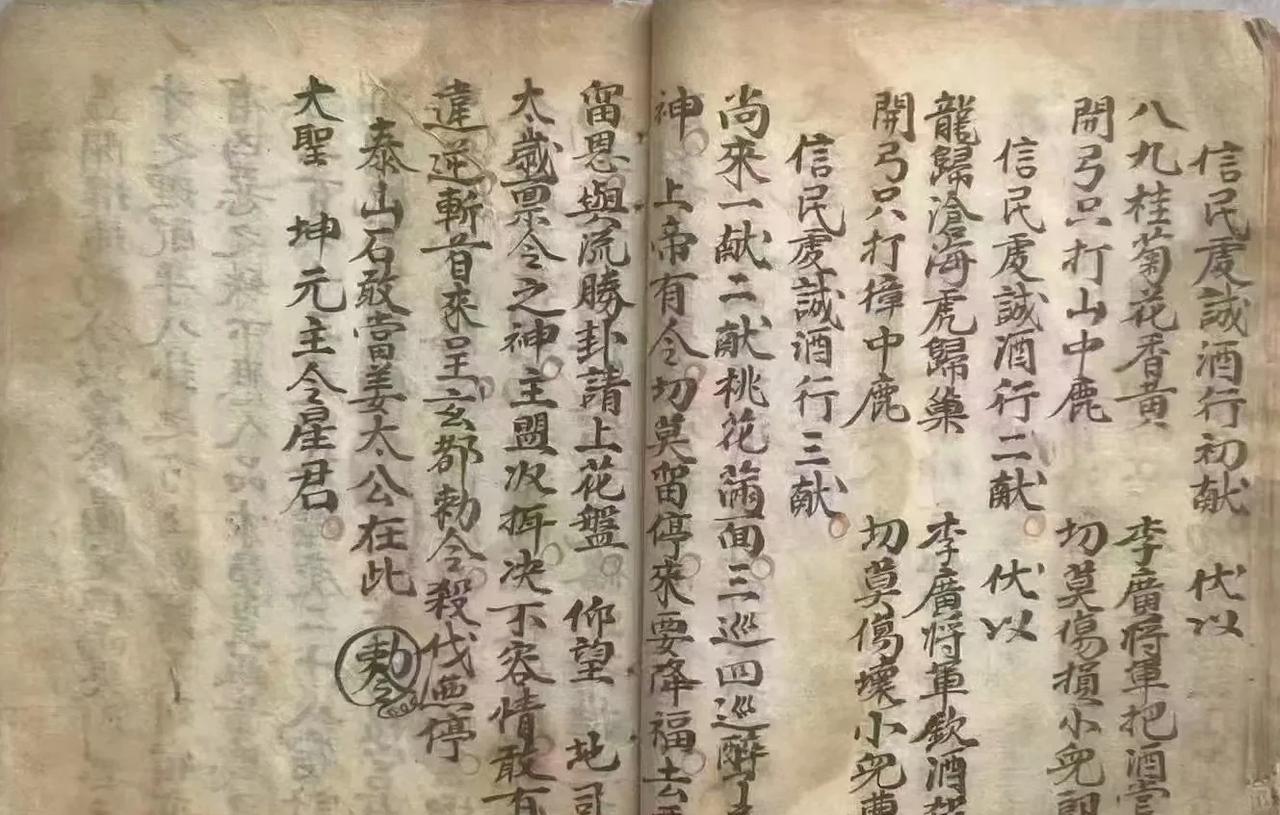 信民虔誠酒行初献　伏以
八九桂菊花香黄　李廣將軍把酒嘗
開弓只打山中鹿　切莫傷損小兒
信民虔誠酒行二献　伏以
龍歸滄海虎歸巢　李廣將軍飲酒
開弓只打獐中鹿　切莫傷壞小兒
信民虔誠酒行三献
尚來一献二献桃花滿面三巡四巡醉了
神　上帝有令切莫留停來要降福去
留恩與流勝卦請上花盤　仰望　地司
太歲禀令之神主盟收　决不容情敢有
違逆斬首來呈玄都勅令殺伐無停
泰山石敢當姜太公在此　勅令
大聖　坤元主令星君